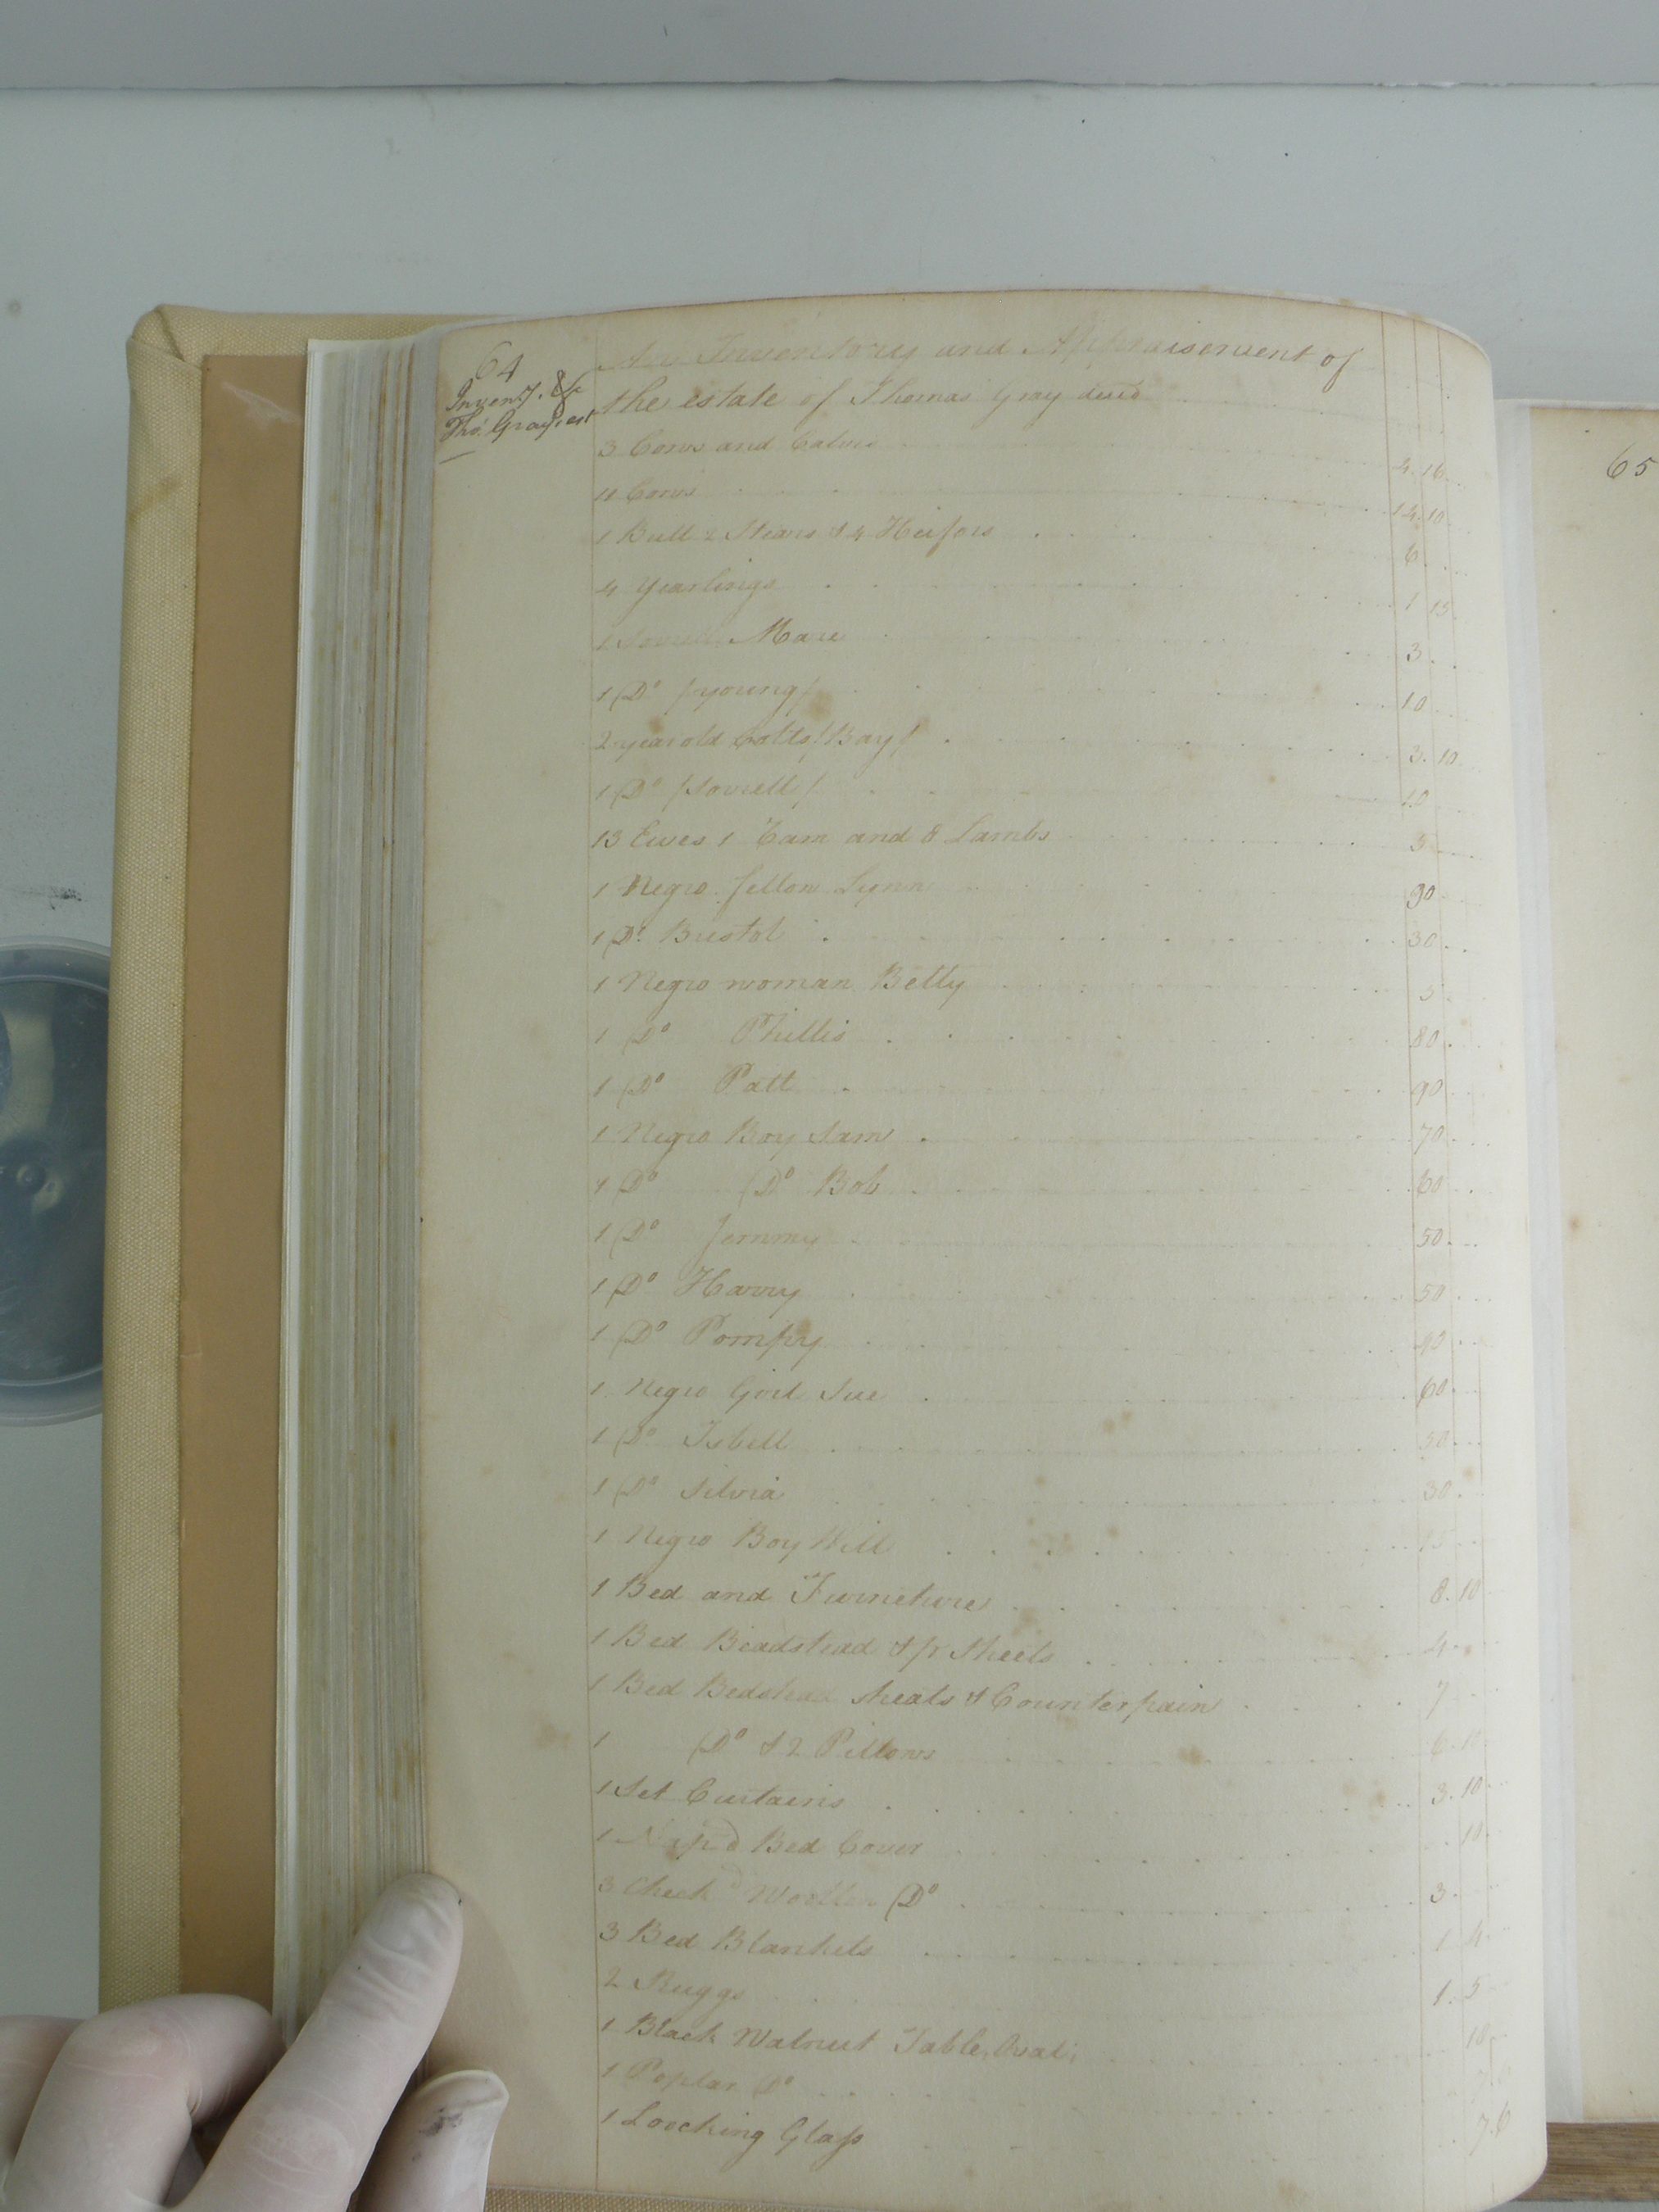 64
Invent.y &c
Tho.s Gray's est
An Inventory and Appraisement of
the estate of Thomas Gray decd
3 Cows and Calves 4.16
11 Cows 14.10
1 Bull 2 Stears & 4 Heifors 6
4 Yearlings 1 15
1 Sorrell Mare 3
1 Do /young/ 10
2 year old Colts /Bay/ 3.10
1 Do /Sorrell/ 10
13 Ewes 1 Ram and 8 Lambs 5
1 Negro fellow 30
1 Do Bristol 30
1 Negro woman Betty 5
1 Do Phillis 80
1 Do Patt 90
1 Negro Boy Sam 70
1 Do Do Bob 60
1 Do Jemmy 50
1 Do Harry 50
1 Do Pompy 40
1 Negro Girl Sue 60
1 Do Isbell 50
1 Do Silvia 30
1 Negro Boy Will 15
1 Bed and Furneture 8.10
1 Bed Beadstead & pr Sheets 4
1 Bed Bedstead sheats & Counterpain 7
1 Do & 2 Pillows 6.10
1 Set Curtains 3.10
1 Bed Cover 10
3 Check Woollen Do 3
3 Bed Blankets 1 4
2 Ruggs 1.5
1 Black Walnut Table, Oval; 10
1 Poplar Do
1 Loocking Glass 7.6
65